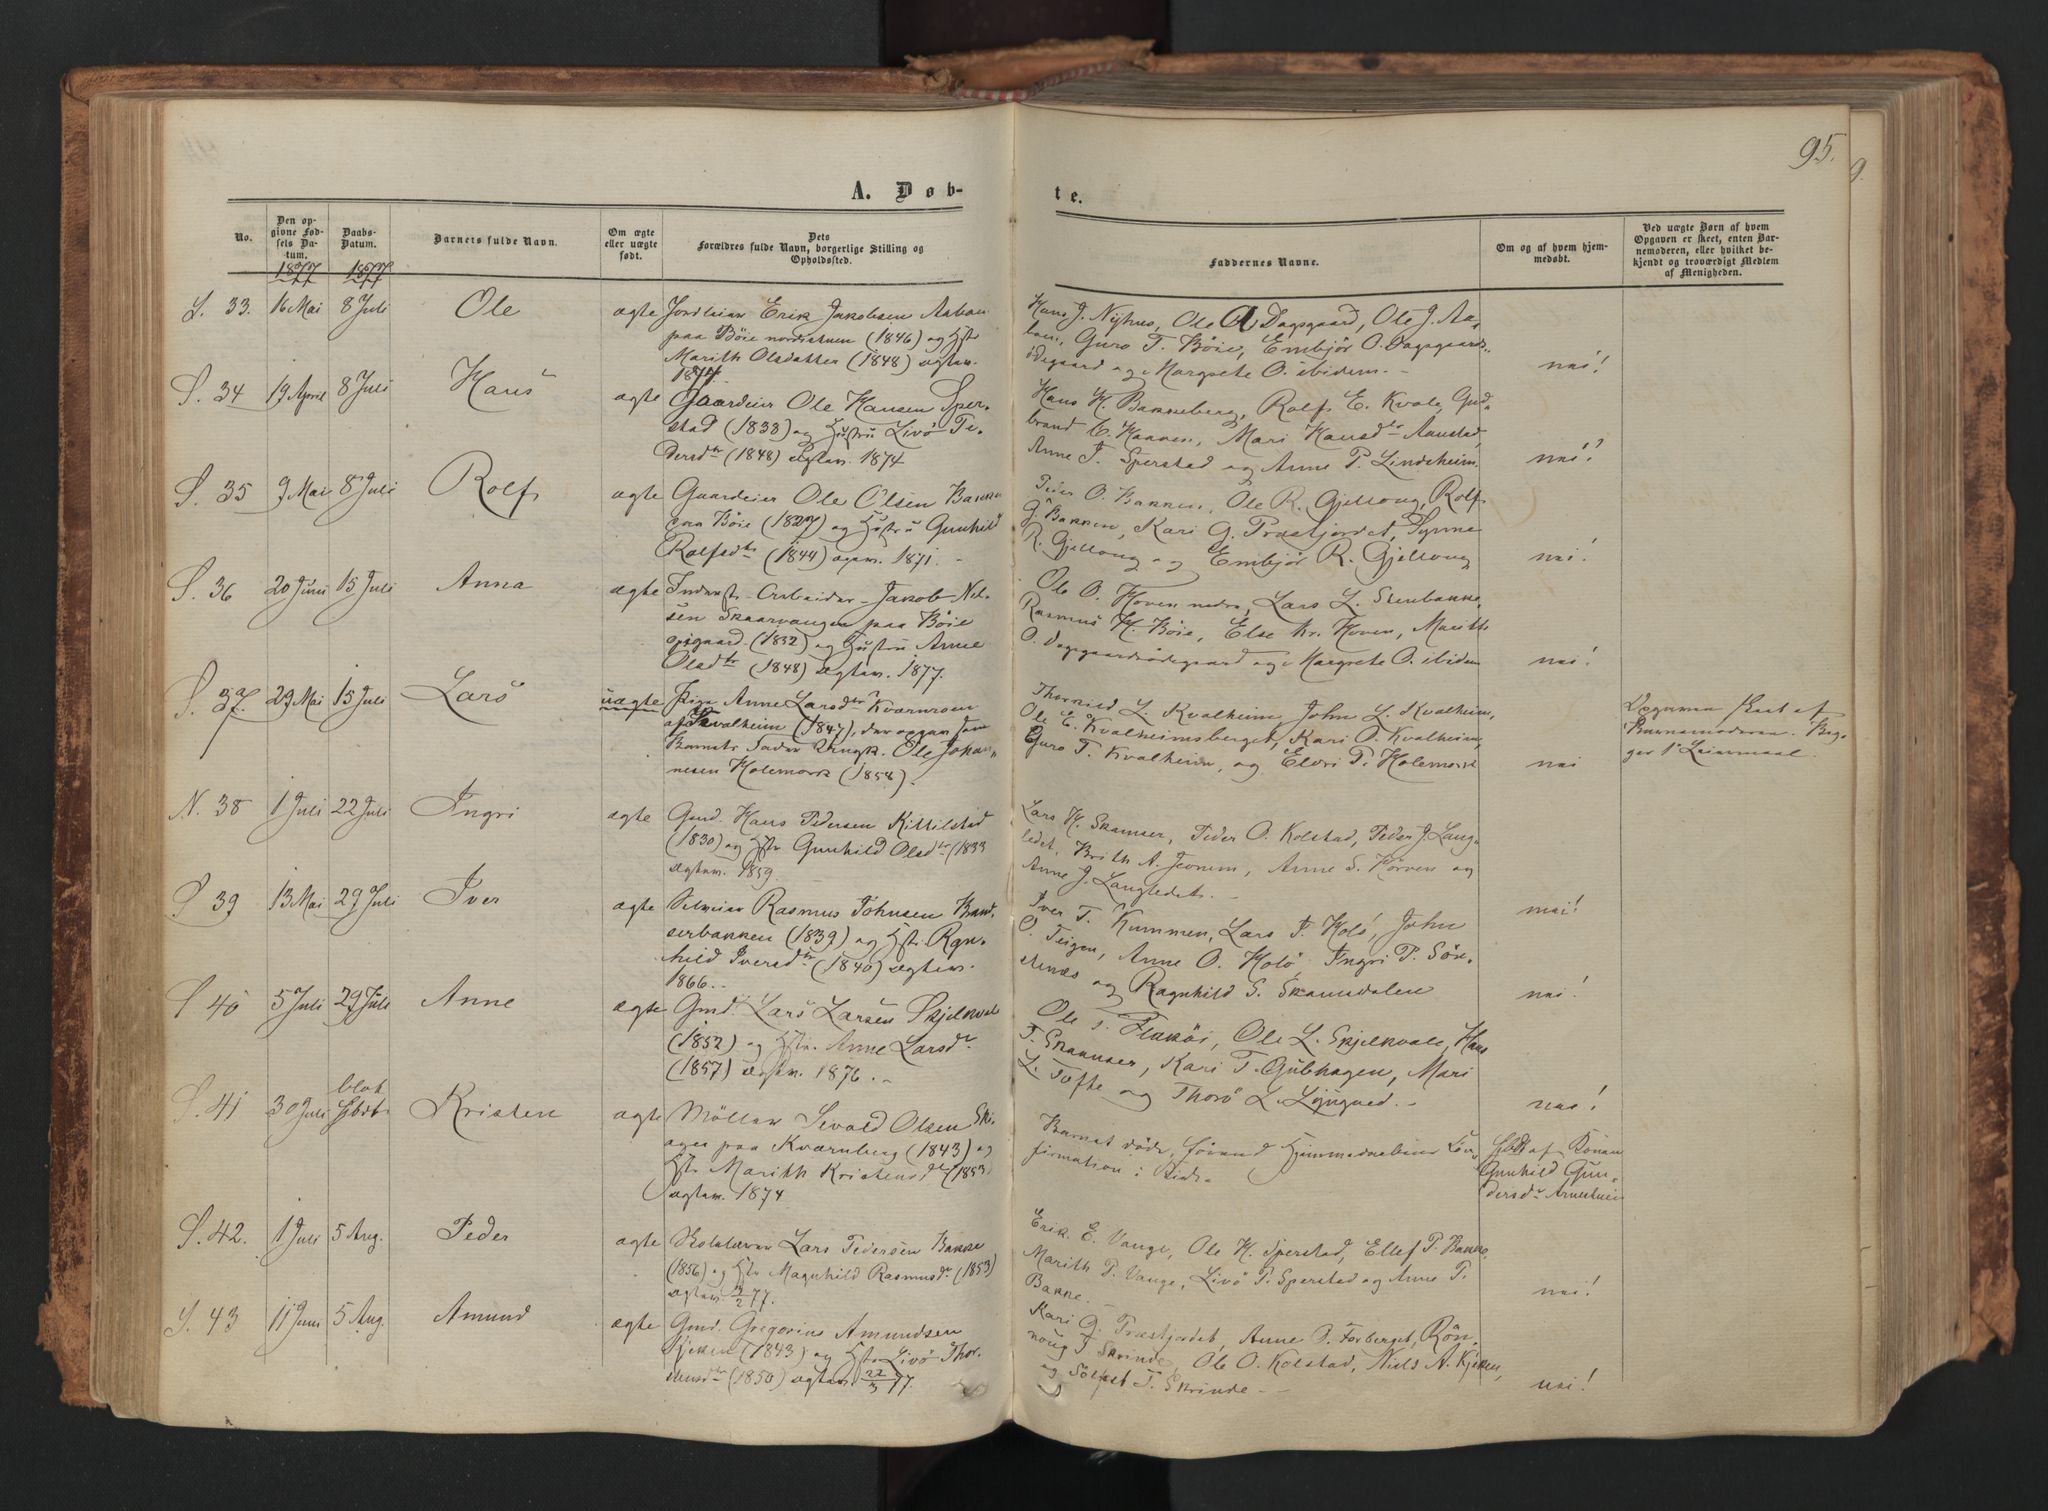 95.
A. Døb-
te.
No.
Den op-
givne Fød-
sels Da-
tum.
Daabs-
Datum.
Barnets fulde Navn.
Om ægte
eller uægte
født.
Dets
Forældres fulde Navn, borgerlige Stilling og
Opholdssted.
Faddernes Navne.
Om og af hvem hjem-
medøbt.
Ved uægte Børn af hvem
Opgaven er skeet, enten Bar-
nemoderen, eller hvilket be-
kjendt og troværdigt Medlem
af Menigheden.
1877 1877
S. 33. 16 Mai 8 Juli Ole ægte Jordleier Erik Jakobsen
paa Böie nordistuen (1846) og Hstr
Marith Olsdatter (1848) ægtev.
1874.
Hans J. Nyhus, Ole A Dagsgaard, Ole J. Aa-
Guro T. Böie, Embjör O. Dagsgaards-
ödegaard og Margrete O. ibidem. - nei!
S. 34 19 April 8 Juli Hans ægte Gaardeier Ole Hansen Sper-
stad (1838) og Hustru Livö Pe-
dersdtr (1848) ægtev. 1874
Hans H. Bakkeberg, Rolf E. Kvale, Gud-
brand E. Haaven, Mari Hansdtr Aanstad,
Anne T. Sperstad og Anne P. Lindeheim. nei!
S. 35 9 Mai 8 Juli Rolf ægte Gaardeier Ole Olsen Bakke
paa Böie (1827) og Hustru Gunhild
Rolfsdtr (1844) ægtev. 1871. -
Peder O. Bakken, Ole R. Gjelloug, Rolf
G. Bakken, Kari G. Præstjordet, Synne
R. Gjelloug og Embjör R. Gjelloug nei!
S. 36 20 Juni 15 Juli Anna ægte Inderst - Arbeider - Jakob Nil-
sen Skaarvangen paa Böie
opigaard (1832) og Hustru Anne
Olsdtr (1848) ægtev. 1877.
Ole O. Hoven nedre, Lars L. Stenbakke,
Rasmus H. Böie, Else Kr. Hoven, Marith
O. Dagsgaardsödegaard og Margrete O. ibidem nei!
S. 37. 29 Mai 15 Juli Lars uægte Pige Anne Larsdtr Kværnrom
af Kvalheim (1847), der opgav som
Barnets Fader Ungk. Ole Johan-
nesen Holemork (1858).
Thorkild L. Kvalheim, John L. Kvalheim,
Ole E. Kvalheimsberget, Kari O. Kvalheim,
Guro T. Kvalheim, og Eldri P. Holemork nei
Opgaven skeet af
Barnemoderen. Beg-
ges 1ste Leiermaal.
N. 38 1 Juli 22 Juli Ingri ægte Gmd. Hans Pedersen Kittilstad
(1830) og Hstr Gunhild Olsdtr (1833
ægtev. 1859.
Lars H. Skamser, Peder O. Kolstad, Peder J. Lang-
ledet, Brith A. Jevnem, Anne S. Hörven og
Anne J. Langledet. -
nei!
S 39 13 Mai 29 Juli Iver ægte Selveier Rasmus Johnsen Brand-
serbakken (1839) og Hstr. Ragn-
hild Iversdtr (1840) ægtev.
1866. -
Iver T. Kummen, Lars P. Holö, John
O. Teigen, Anne O. Holö, Ingri P. Sör-
stenæs og Ragnhild S. Skamsdalen nei!
S 40 5 Juli 29 Juli Anne ægte Gmd. Lars Larsen Skjelkval
(1852) og Hstr. Anne Larsdtr
(1857) ægtev. 1876. -
Ole T. Flaköi, Ole L. Skjelkvale, Hans
T. Skamser, Kari T. Gubhagen, Mari
L. Tofte og Thorö L. Lyngved. - nei!
S. 41 30 Juli blot
Hjdbt. Kristen ægte Möller Sevald Olsen Ski-
ager paa Kværnberg (1843) og
Hstr Marith Kristensdtr (1853)
ægtev. 1874
Barnet döde, forend Hjemmedaabens Con-
firmation i Kirke.
Hjdbt af Konen
Gunhild Gun-
dersdtr Arnesteie
S. 42. 1 Juli 5 Aug. Peder ægte Skolelærer Lars Pedersen Bakke
(1856) og Hstr Magnhild Rasmusdtr (1853)
Erik E. Vange, Ole H. Sperstad, Ellef P. Bakke,
Marith P. Vange, Livö P. Sperstad og Anne P.
Bakke. - nei!
S. 43 11 Juni 5 Aug. Amund ægte Gmd. Gregorius Amundsen
Kjekken (1843) og Hstr Livö Thor-
stensdtr (1850) ægtev. 22/3 77.
Kari G. Præstjordet, Anne O. Forberget, Rön-
noug T Skrinde, Ole O. Kolstad, Niels A. Kjekken,
og Solvet T. Skrinde - nei!